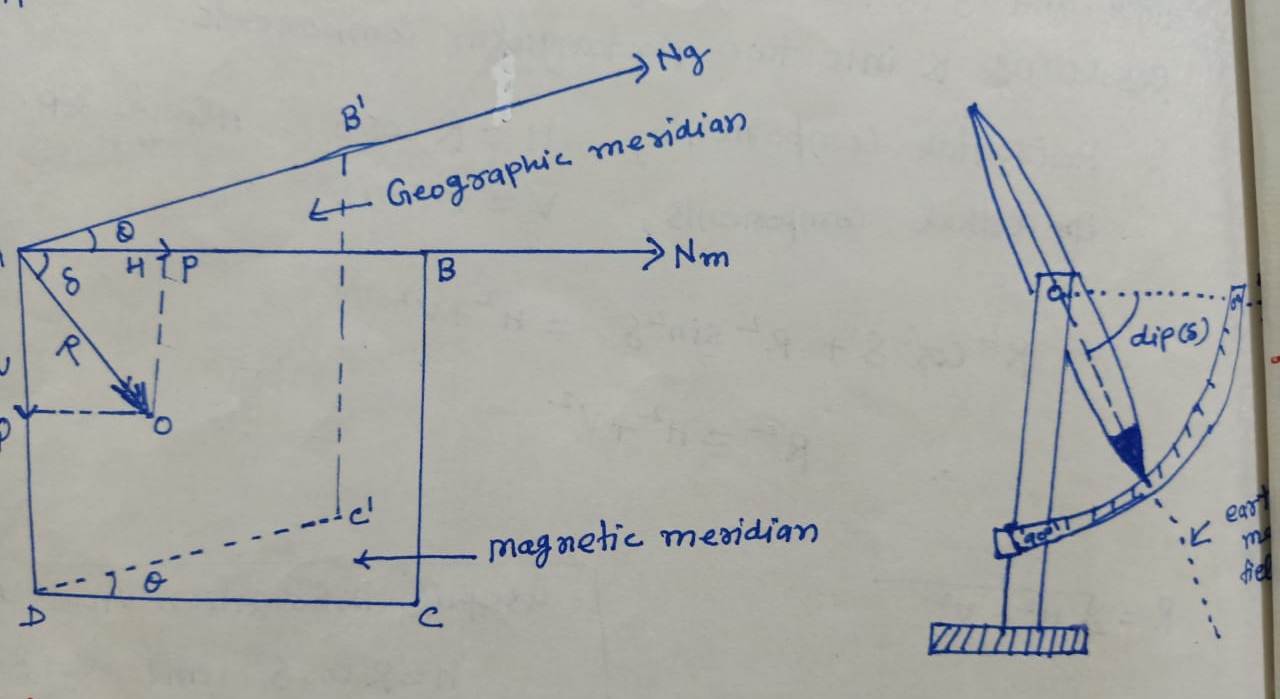 Ng
B'
Geographic meridian
θ
H P
B
Nm
δ
R
O
dip(δ)
C'
magnetic meridian
θ
D
C
90°
0°